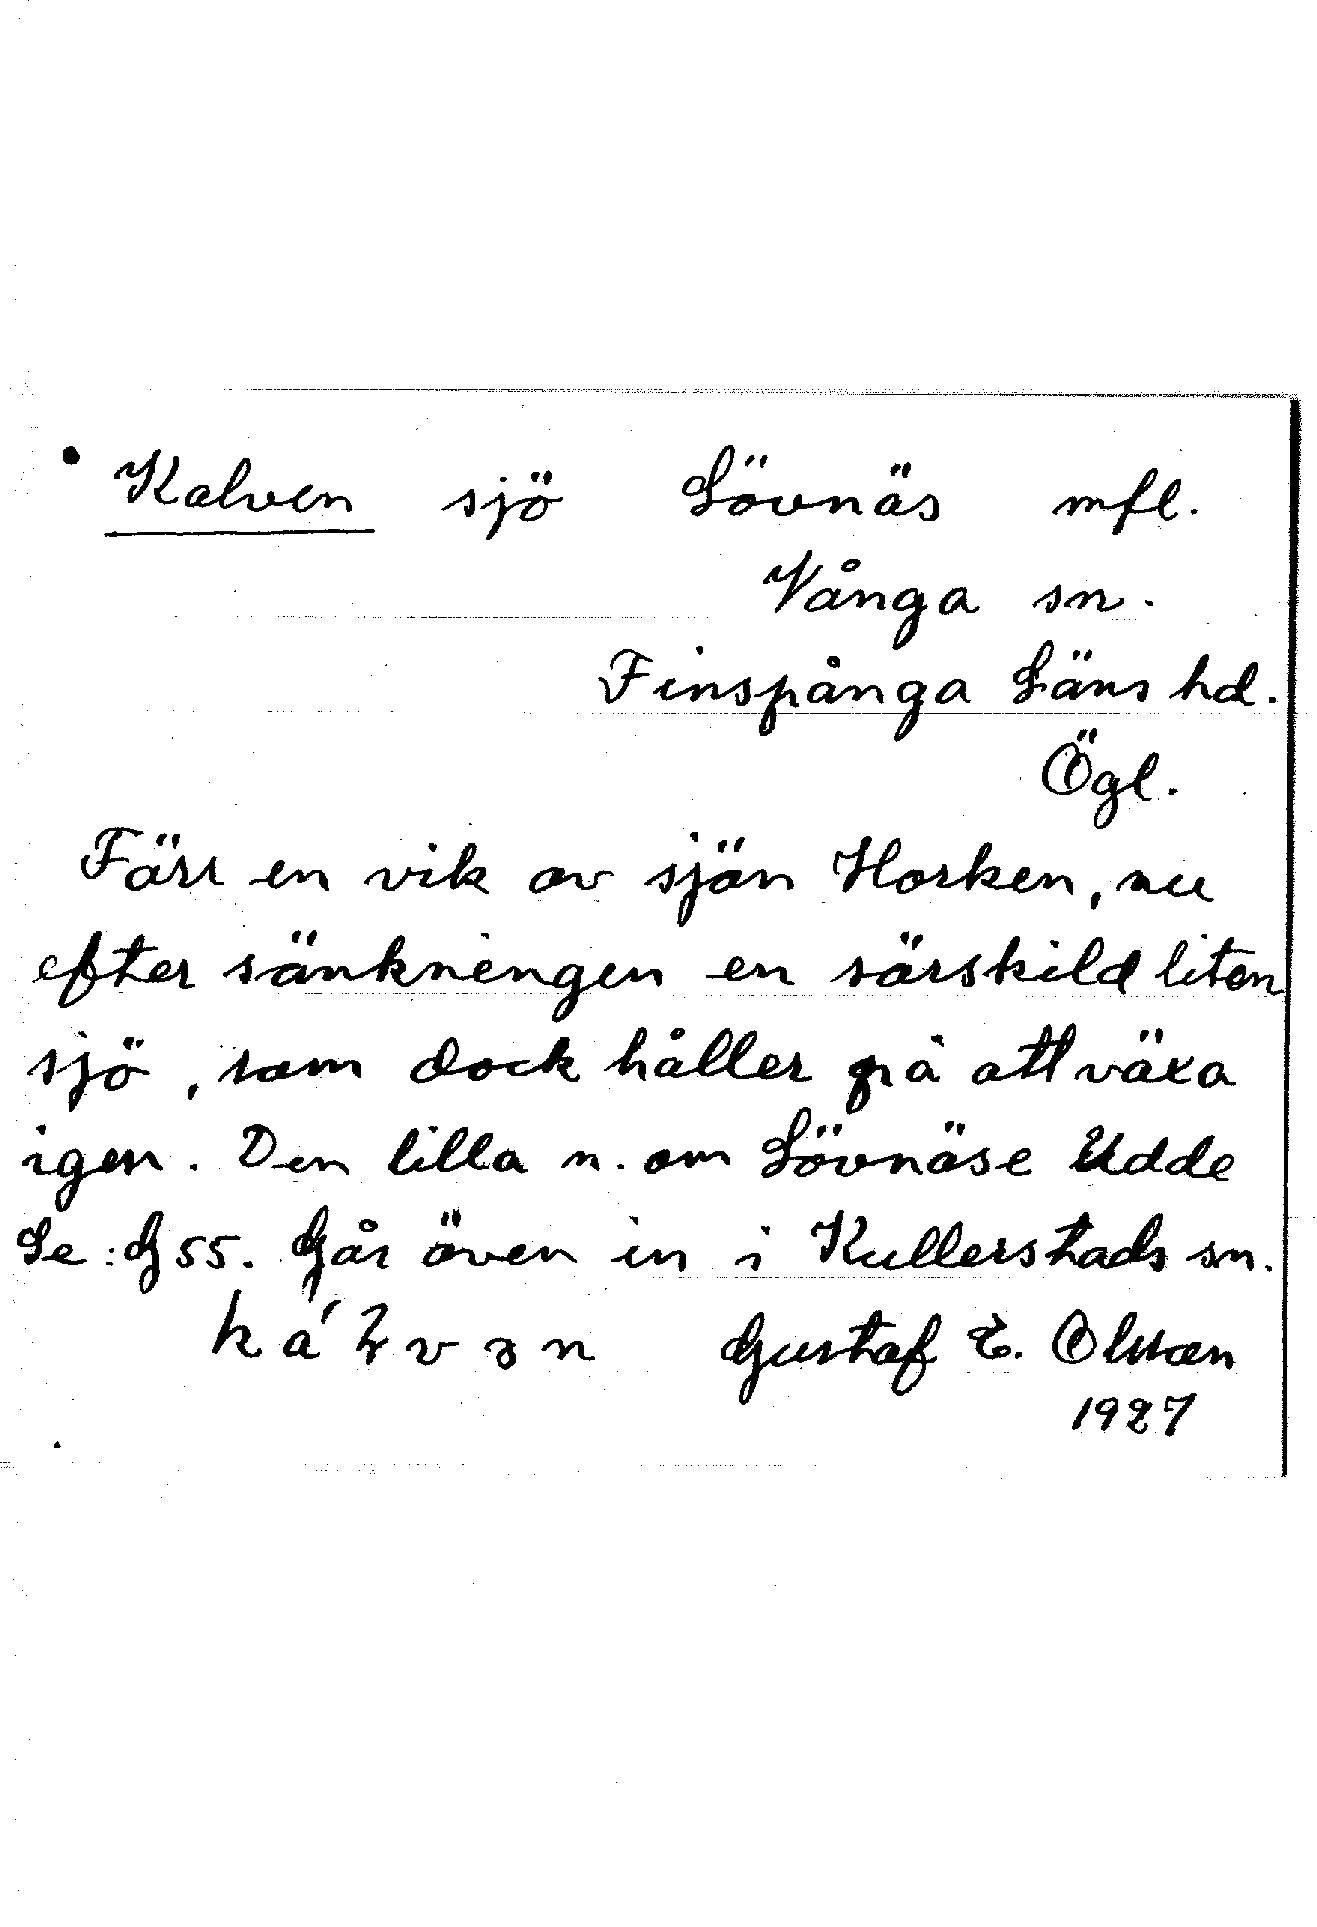 Kalven sjö Lövnäs mfl.
Vånga sn.
Finspånga Läns hd.
Ögl.
Förr en vik av sjön Horken, nu
efter sänkningen en särskild liten
sjö, som dock håller på att växa
igen. Den lilla n. om Lövnäse Udde
Se: G 55. Går även in i Kullerstads sn.
Gustaf E. Olsson
1927